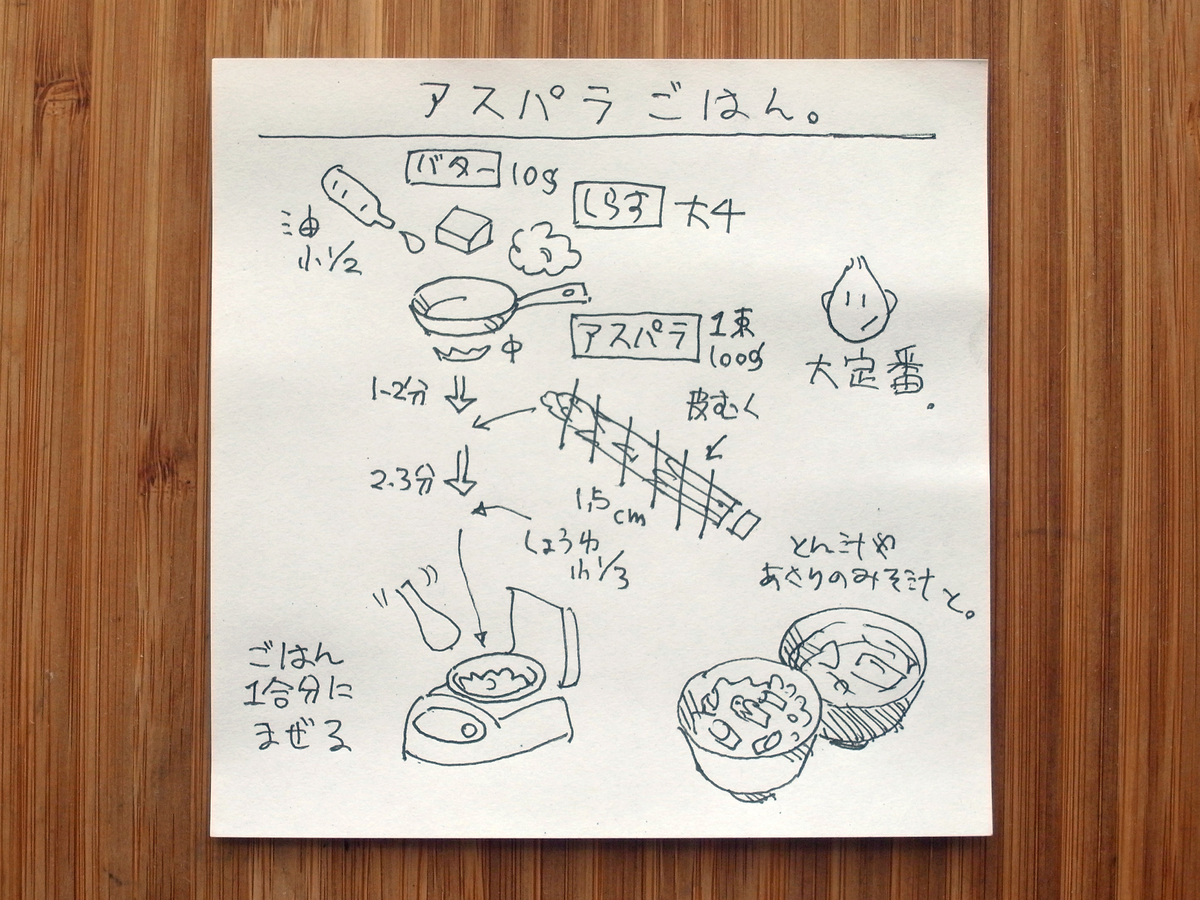 アスパラごはん。
バター 10g
しらす 大4
油
小1/2
中
アスパラ
1束
100g
大定番。
1-2分
皮むく
2.3分
1,5cm
しょうゆ
小1/3
とん汁や
あさりのみそ汁と。
ごはん
1合分に
まぜる